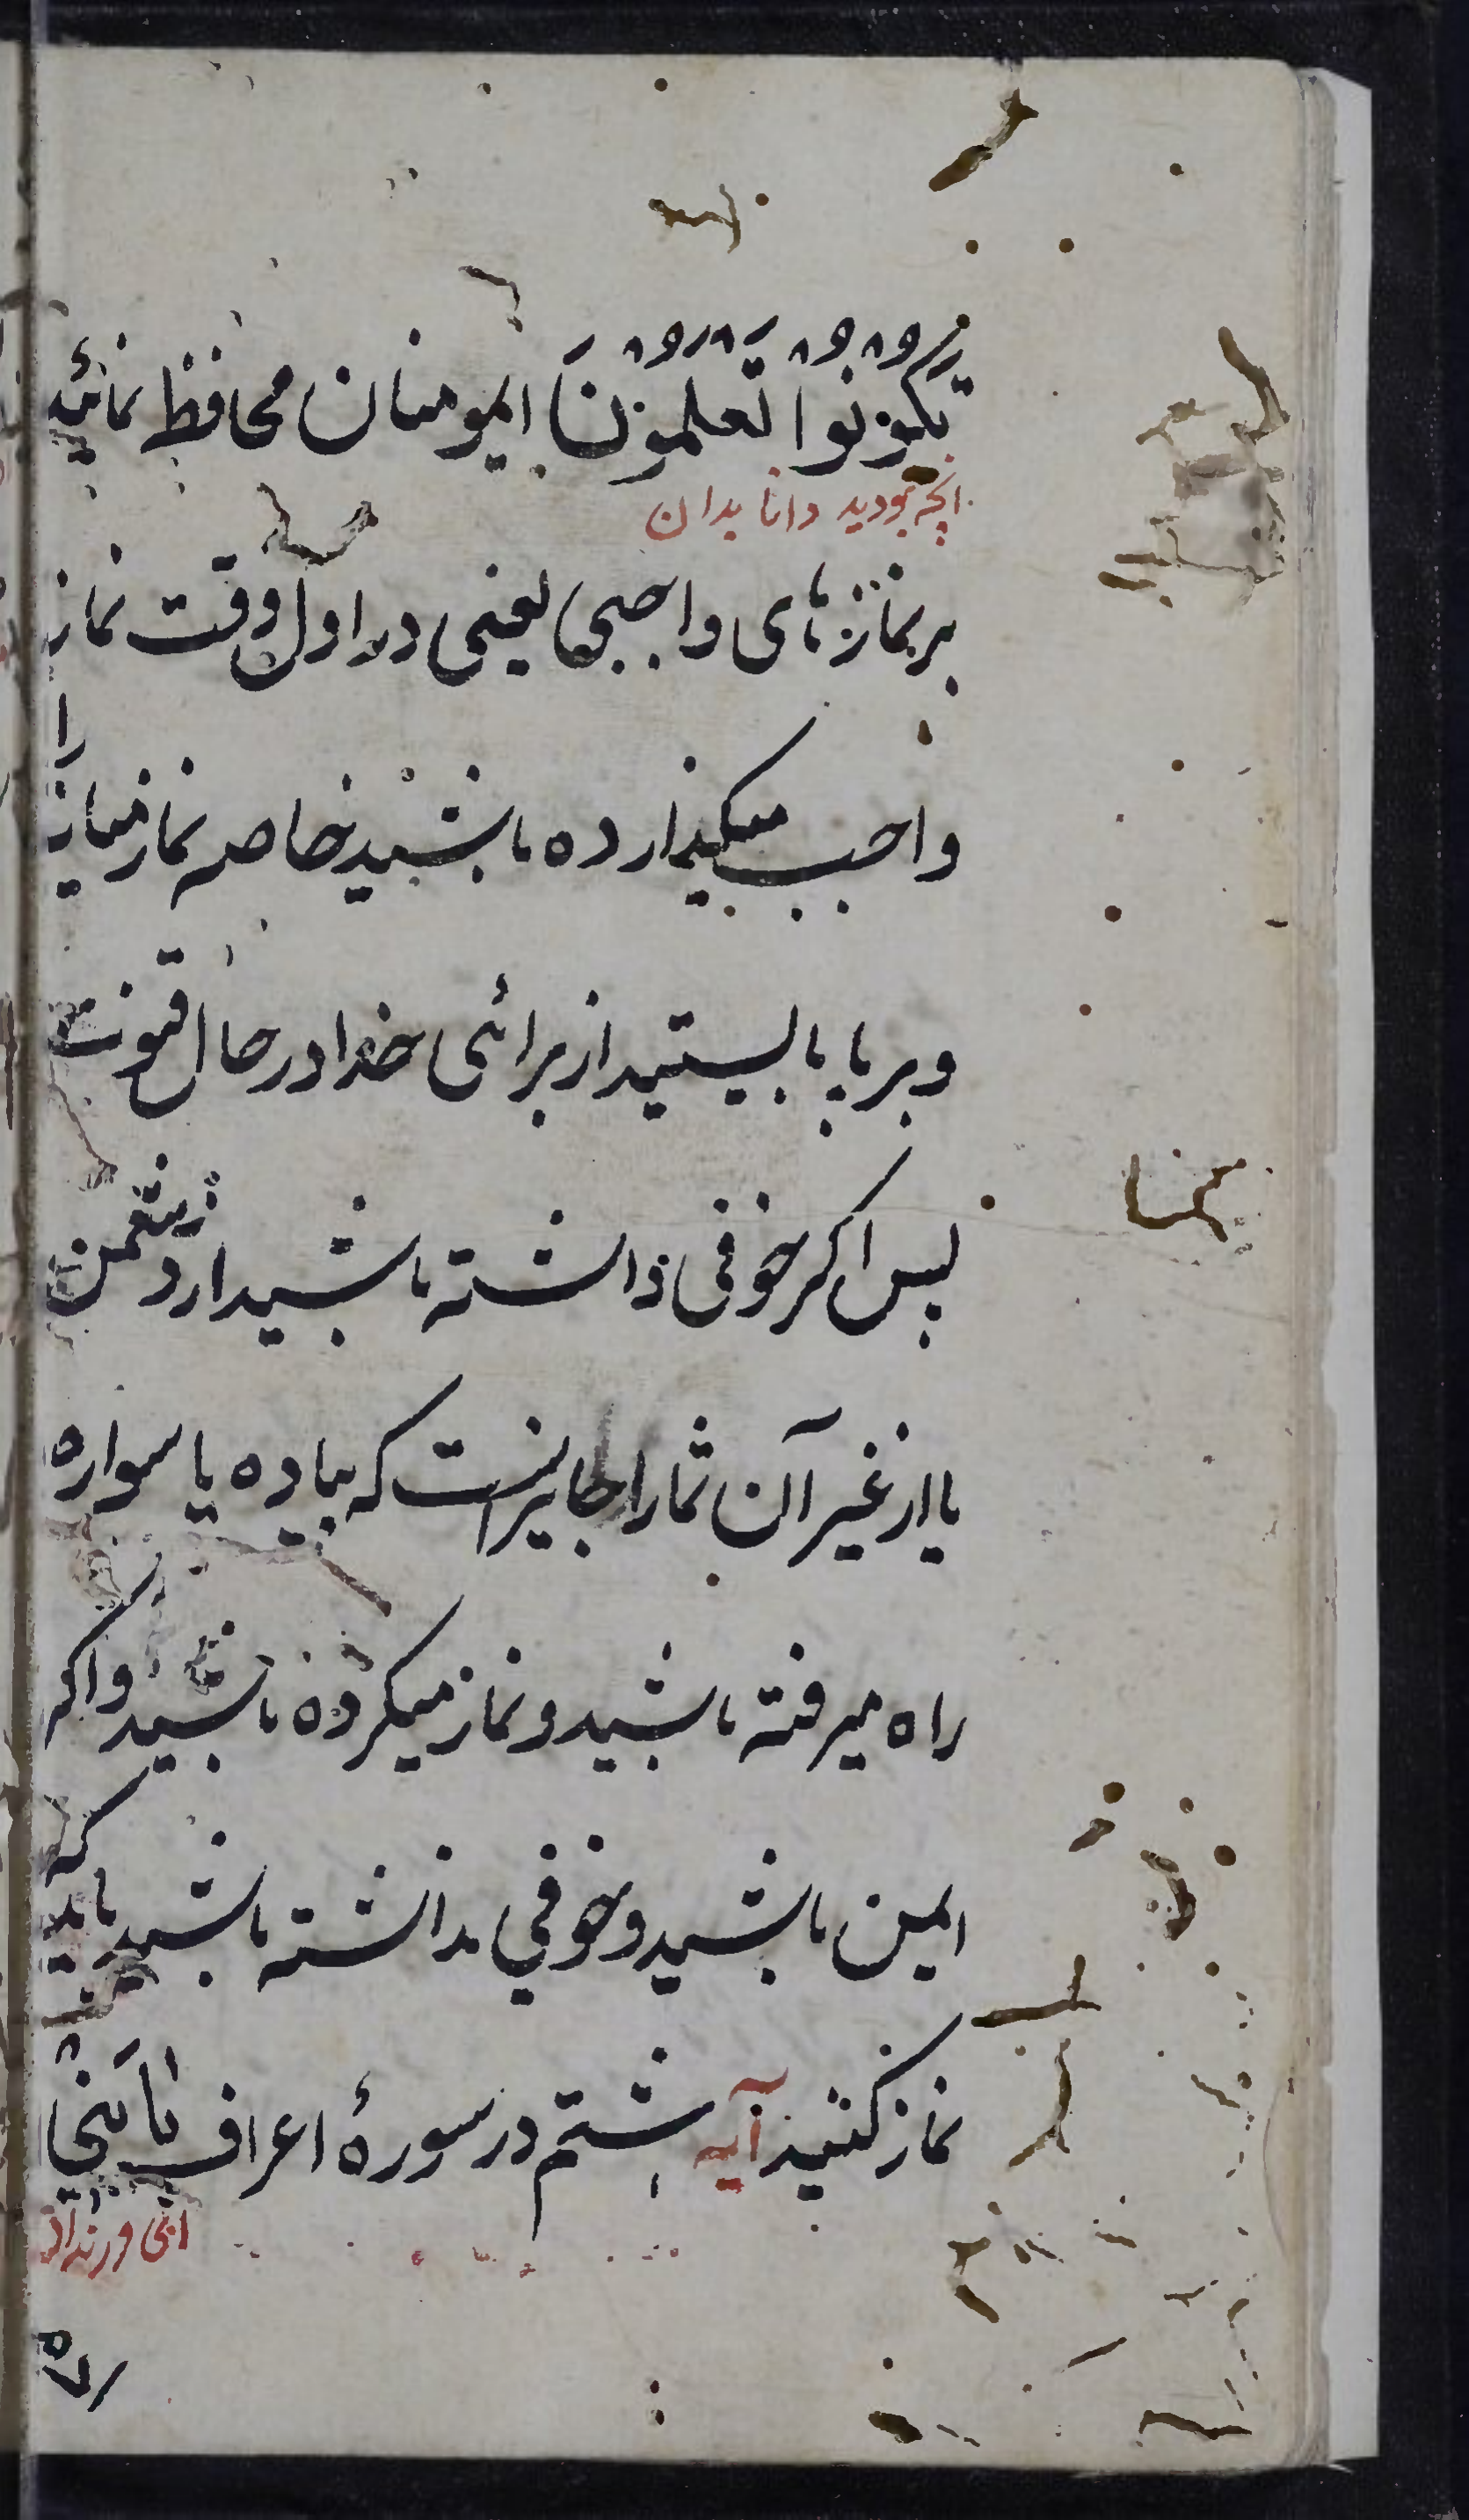 تَكُوْنُوْا تَعْلَمُوْنَ ایمومنان محافظ نمائید
آنچه نبودید دانا بدان
بر نمازهای واجبی یعنی در اول وقت نماز
را
واجب میگذارده باشید خاصه نماز میانه
و برپا بایستید از برائی خدا در حال قنوت
پس اکر خوفی داشته باشید از دشمن
یا از غیر آن شما را جایز است که پیاده یا سواره
راه میرفته باشید و نماز میکرده باشید و اکر
ایمن باشید و خوفی نداشته باشید باید که
نماز کنید آیه هشتم در سورهٔ اعراف يَابَنِيْ
ای فرزندان